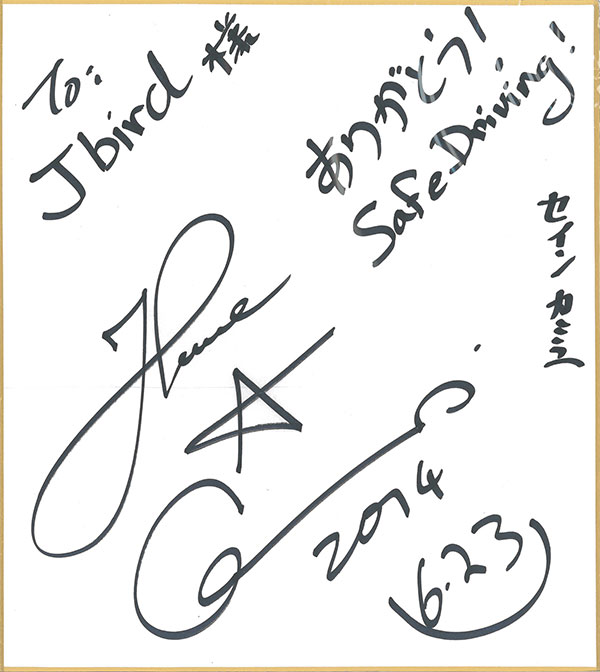 To:
Jbird 様
ありがとう!
Safe Driving!
セイン カミュ
2014
6.23